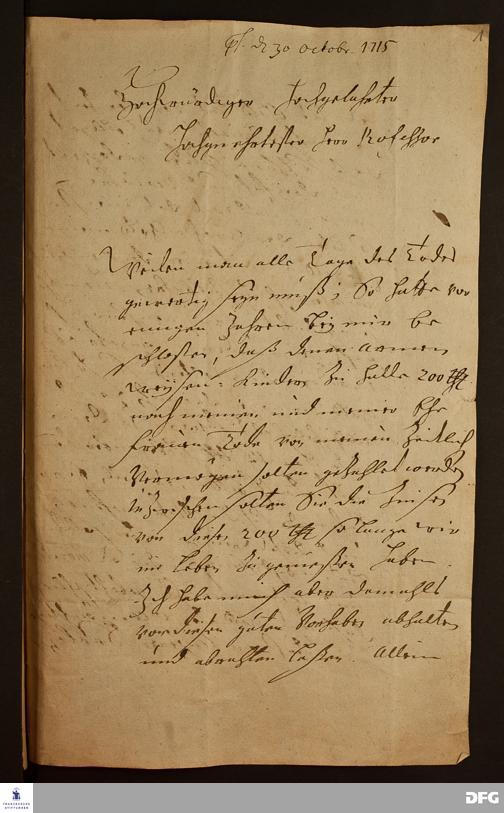 1
d 30 octobr. 1715
Hochwürdiger Hochgelahrter
Hochgeehrtester Herr Professor
Weilen man alle Tage des Todes
gewertig seyn muß; So hatte vor
einigen Jahren bey mir be
schloßen, daß denen armen
Weysen-Kinder zu Halle 200 thl
nach meinen und meiner Ehe
frauen Tode von meinen Zeitlich
Vermögen solten gezahlet werden
Inzwischen solten Sie die Zinsen
von diesen 200 thl so lange wir
im Leben zu genießen haben.
Ich habe mich aber damahls
von diesen guten Vorhaben abhalten
und abrahten laßen. Allein
FRANCKESCHE
STIFTUNGEN
DFG